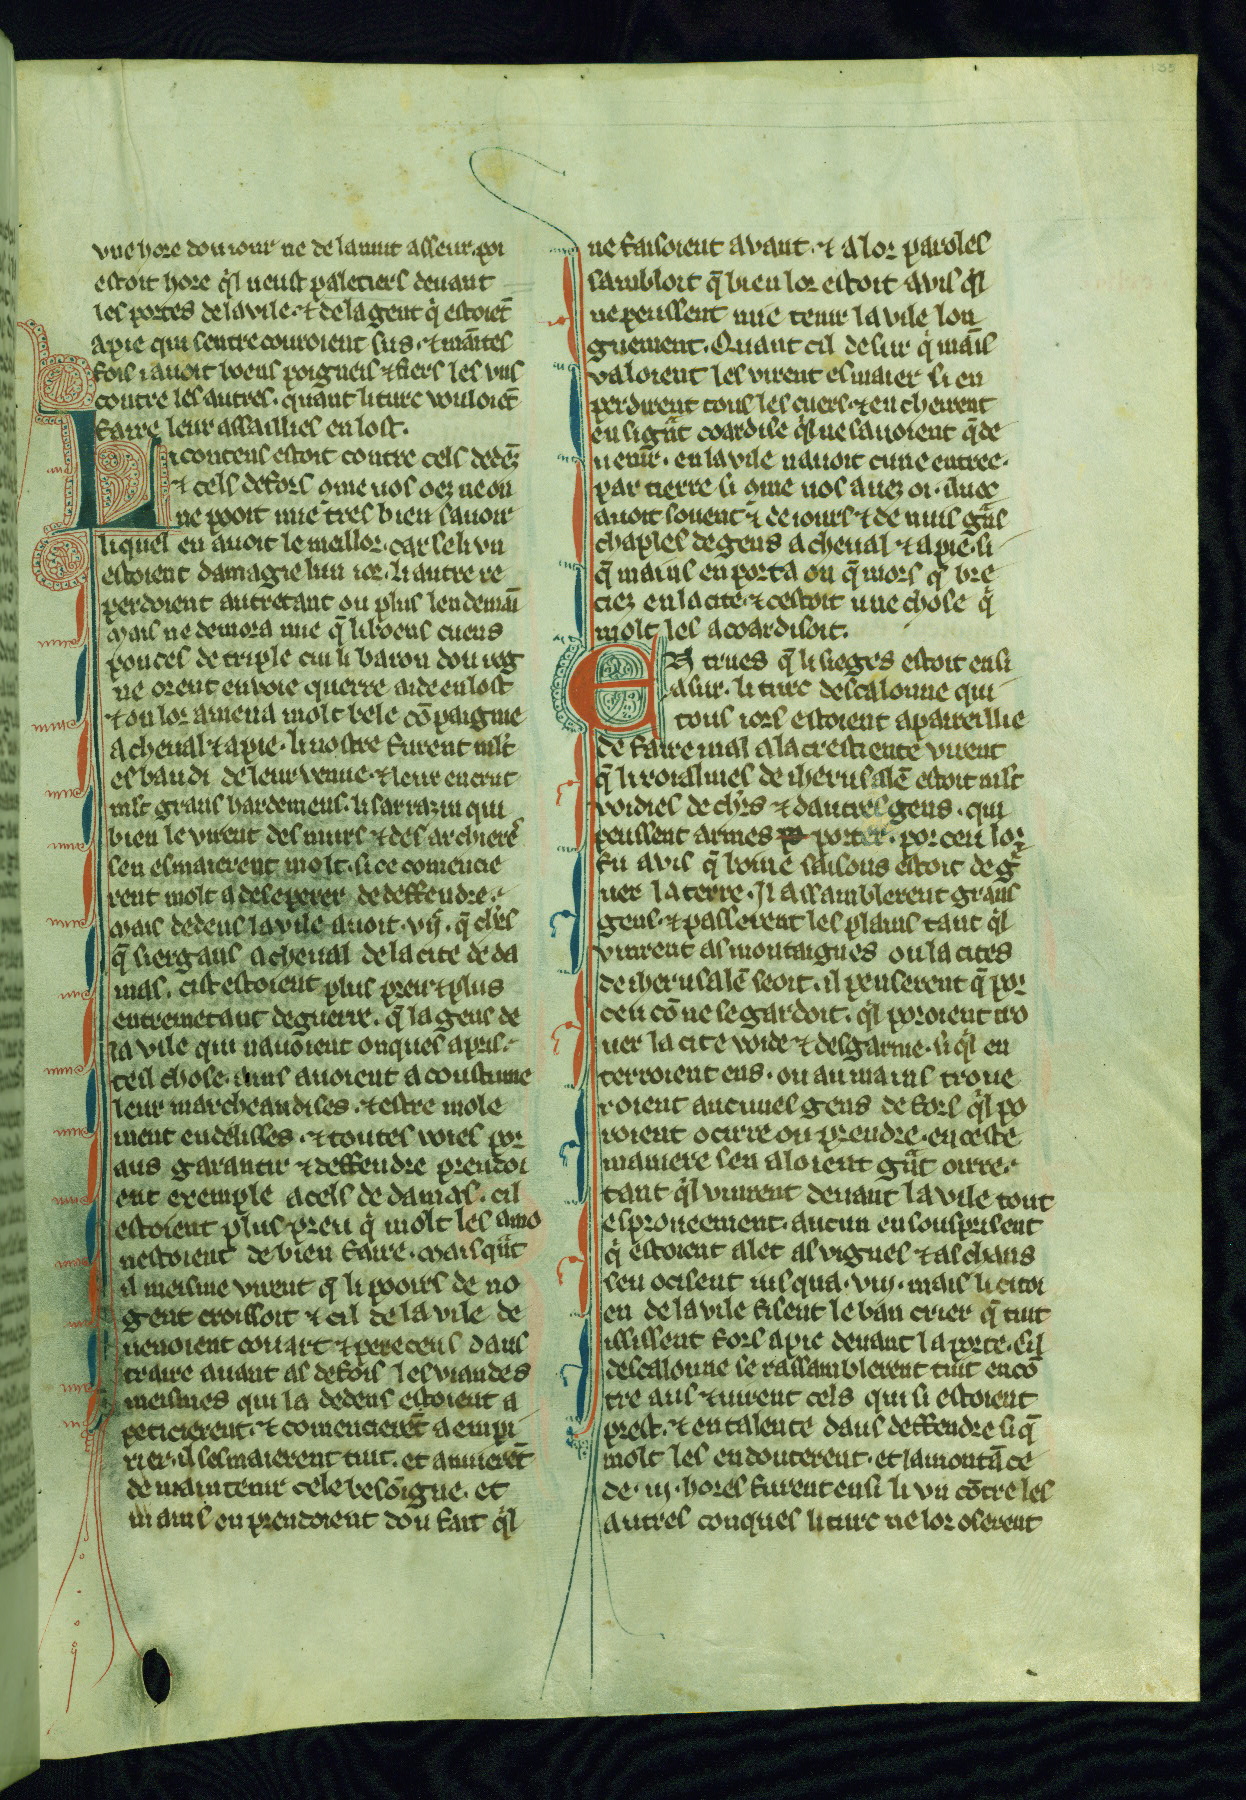 vne hore dou iour ne de la nuit asseur. poi
estoit hore q̃l neust paleticiers deuant
les portes de la vile. ⁊ de la gent q̃ estoiẽt
a pie qui sentrecouroient sus. ⁊ maītes
fois i auoit boens poigneis ⁊ fiers les vns
contre les autres. quant li turc vouloiẽt
faire leur assaillies en lost.
Li contens estoit contre cels dedẽz
⁊ cels defors ꝯme uos oez ne on
ne pooit mie tres bien sauoir
liquel en auoit le meillor. car se li vn
estoient damagie lun ior. li autre re
perdoient autretant ou plus lendemaī
Mais ne demora mie q̃ li boens cuens
pouces de triple cui li baron dou reg
ne orent enuoie querre aide en lost
⁊ ou lor amena molt bele cõpaignie
a cheual ⁊ a pie. li nostre furent mlt
esbaudi de leur venue. ⁊ leur encrut
mlt grans hardemens. li sarrazin qui
bien le virent des murs ⁊ des archieres
sen esmaierent molt. si ce comencie
rent molt a desesperer de deffendre.
Mais dedens la vile auoit .vij. q̃ chrs
q̃ siergans a cheual de la cite de da
mas. cist estoient plus preu ⁊ plus
entremetant de guerre. q̃ la gens de
la vile qui nauoient onques apris
teil chose. ains auoient a coustume
leur marcheandises. ⁊ estre mole
ment en delisses. ⁊ toutes voies por
aus garantir ⁊ deffendre prendoi
ent exemple a cels de damas. cil
estoient plus preu q̃ molt les amo
nestoient de bien faire. Mais quãt
il meisme virent q̃ li pooirs de no
gent croissoit ⁊ cil de la vile de
uenoient couart ⁊ pereceus daus
traire auant as defois les viandes
meismes qui la dedens estoient a
peticierent. ⁊ comencierẽt a empi
rier. il sesmaierent tuit. et anuierẽt
de maintenir cele besoigne. et
mains en prendoient dou fait q̃l
ne faisoient auant. ⁊ a lor paroles
sambloit q̃ bien lor estoit auis q̃l
ne peussent mie tenir la vile lon
guement. Quant cil desur q̃ maīs
valoient les virent esmaier si en
perdirent tous les cuers. ⁊ en cheirent
en si grãt coardise q̃l ne sauoient q̃ de
uenir. en la vile nauoit cune entree
par tierre si ꝯme uos auez oi. Auoc
auoit souent ⁊ de iours ⁊ de nuis grãs
chaples de gens a cheual ⁊ a pie. si
q̃ mains en porta on q̃ mors q̃ ble
ciez en la cite. ⁊ cestoit une chose q̃
molt les acoardisoit.
En trues q̃ li sieges estoit ensi
a sur. li turc descalonne qui
tous iors estoient apareillie
de faire mal a la crestiente virent
q̃ li roialmes de iherusalẽ estoit mlt
voidies de chrs ⁊ dautres gens. qui
peussent armes porter. por ceu lor
fu auis q̃ boine saisons estoit de g̃
uer la terre. Il assamblerent grans
gens. ⁊ passerent les plains tant q̃l
vinrent as montaignes ou la cites
de iherusalẽ seoit. il penserent q̃ por
ceu cõ ne se gardoit. q̃l poroient tro
uer la cite voide ⁊ desgarnie. si q̃l en
terroient ens. ou au mains troue
roient aucunes gens defors q̃l po
roient ocirre ou prendre. en ceste
maniere sen aloient grãt oirre.
tant q̃l vinrent deuant la vile tout
esproueement. aucun en souspristrent
q̃ estoient alet as vignes ⁊ as chans
sen ocisent iusqua .viij. mais li citoi
en de la vile fisent le ban crier q̃ tuit
ississent fors a pie deuant la porte. cil
descalonne se rassamblerent tuit encõ
tre aus ⁊ virent cels qui si estoient
prest. ⁊ entalente daus deffendre si q̃
molt les en douterent. et la montãce
de .iij. hores furent ensi li vn cõtre les
autres conques li turc ne lor oserent